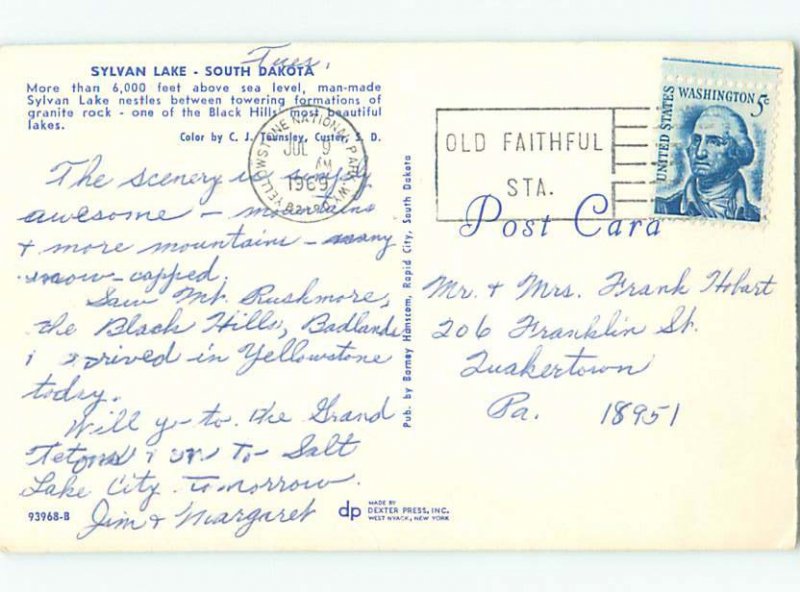 Tues.
SYLVAN LAKE - SOUTH DAKOTA
More than 6,000 feet above sea level, man-made
Sylvan Lake nestles between towering formations of
granite rock - one of the Black Hills' most beautiful
lakes.
Color by C. J. Townsley, Custer, S. D.
The scenery is simply
awesome - mountains
+ more mountains - many
snow-capped.
Saw Mt. Rushmore,
the Black Hills, Badlands
& arrived in Yellowstone
today.
Will go to the Grand
Tetons & on to Salt
Lake City tomorrow.
Jim & Margaret
93968-B
dp MADE BY
DEXTER PRESS, INC.
WEST NYACK, NEW YORK
Pub. by Barney Hanscom, Rapid City, South Dakota
YELLOWSTONE NATIONAL PARK, WYO.
JUL 9
AM
1969
82190
OLD FAITHFUL
STA.
UNITED STATES
WASHINGTON 5c
Post Card
Mr. & Mrs. Frank Hobart
206 Franklin St.
Quakertown
Pa. 18951